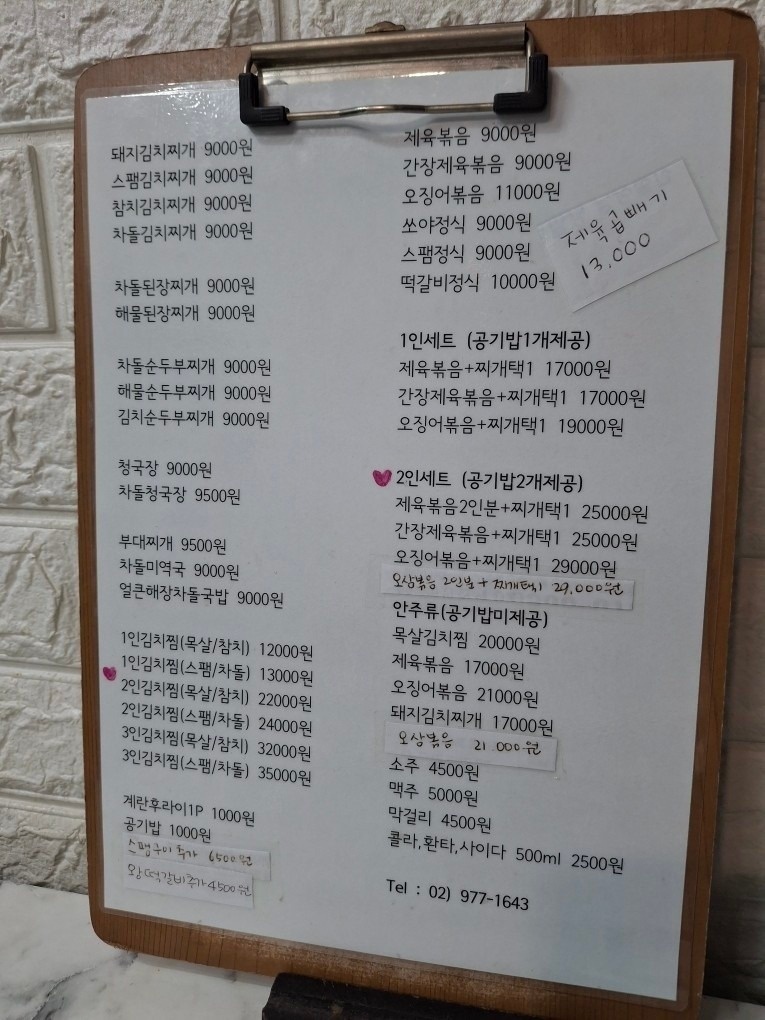 돼지김치찌개 9000원
스팸김치찌개 9000원
참치김치찌개 9000원
차돌김치찌개 9000원
차돌된장찌개 9000원
해물된장찌개 9000원
차돌순두부찌개 9000원
해물순두부찌개 9000원
김치순두부찌개 9000원
청국장 9000원
차돌청국장 9500원
부대찌개 9500원
차돌미역국 9000원
얼큰해장차돌국밥 9000원
1인김치찜(목살/참치) 12000원
1인김치찜(스팸/차돌) 13000원
2인김치찜(목살/참치) 22000원
2인김치찜(스팸/차돌) 24000원
3인김치찜(목살/참치) 32000원
3인김치찜(스팸/차돌) 35000원
계란후라이1P 1000원
공기밥 1000원
스팸구이추가 6500원
왕떡갈비추가 4500원
제육볶음 9000원
간장제육볶음 9000원
오징어볶음 11000원
쏘야정식 9000원
스팸정식 9000원
떡갈비정식 10000원
제육곱빼기
13,000
1인세트 (공기밥1개제공)
제육볶음+찌개택1 17000원
간장제육볶음+찌개택1 17000원
오징어볶음+찌개택1 19000원
2인세트 (공기밥2개제공)
제육볶음2인분+찌개택1 25000원
간장제육볶음+찌개택1 25000원
오징어볶음+찌개택1 29000원
오삼볶음 2인분+찌개택1 29,000원
안주류(공기밥미제공)
목살김치찜 20000원
제육볶음 17000원
오징어볶음 21000원
돼지김치찌개 17000원
오삼볶음 21,000원
소주 4500원
맥주 5000원
막걸리 4500원
콜라,환타,사이다 500ml 2500원
Tel : 02) 977-1643